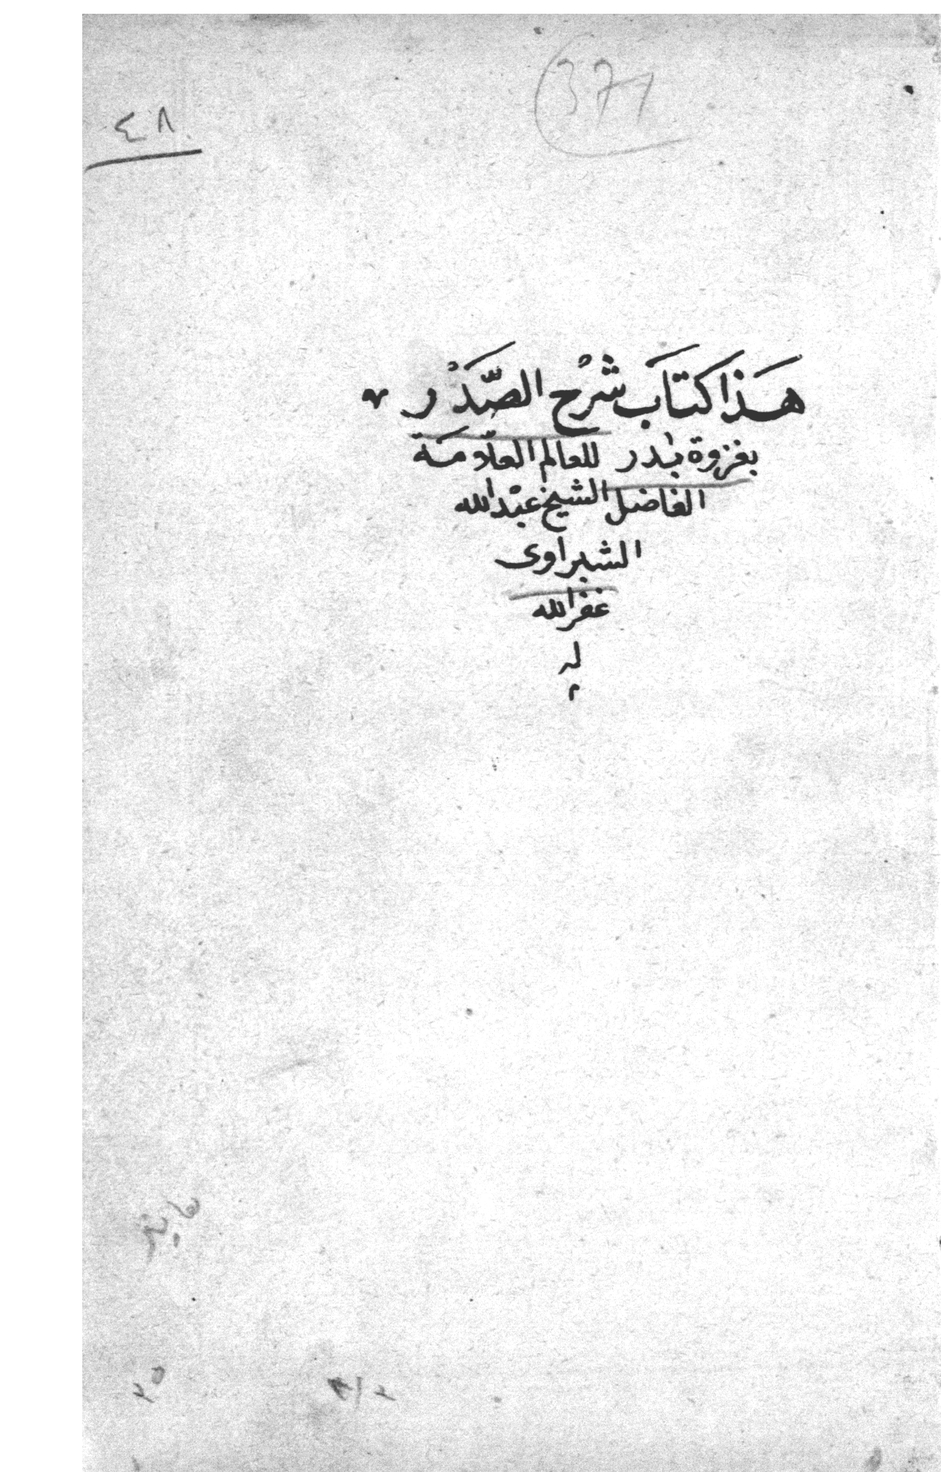 371
٤٨
هَذا كتَاب شرْح الصّدْر
بغزوة بدر للعالم العلّامَة
الفاضل الشيخ عبد الله
الشبراوى
غفر الله
له
م